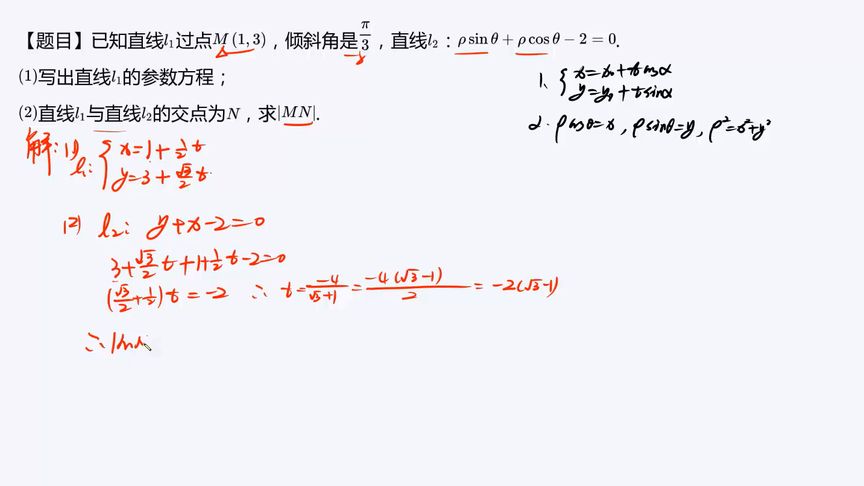 【题目】已知直线l₁过点M(1,3)，倾斜角是π/3，直线l₂：ρsinθ+ρcosθ−2=0.
(1)写出直线l₁的参数方程；
(2)直线l₁与直线l₂的交点为N，求|MN|.
1、{x=x₀+tcosα
y=y₀+tsinα
2. ρcosθ=x, ρsinθ=y, ρ²=x²+y²
解: (1) l₁: {x=1+1/2t
y=3+√3/2t
(2) l₂: y+x-2=0
3+√3/2t+1+1/2t-2=0
(√3/2+1/2)t=-2 ∴ t=-4/(√3+1)=-4(√3-1)/2=-2(√3-1)
∴|M